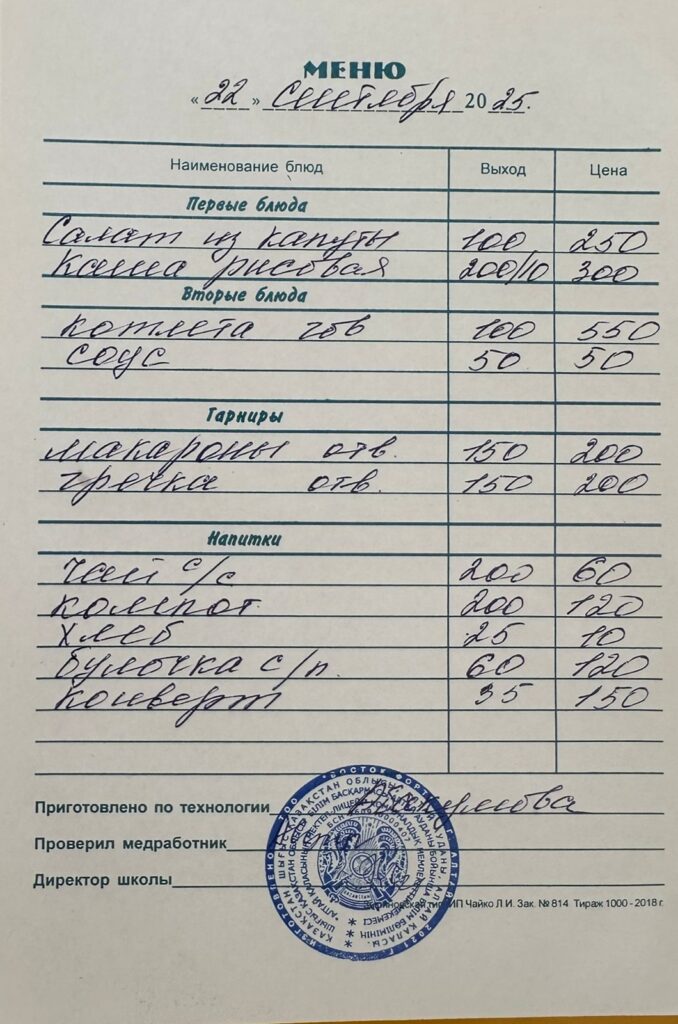 МЕНЮ
« 22 » Сентября 2025.
Наименование блюд Выход Цена
Первые блюда
Салат из капуты 100 250
Каша рисовая 200/10 300
Вторые блюда
котлета гов 100 550
соус 50 50
Гарниры
макароны отв. 150 200
гречка отв. 150 200
Напитки
чай с/с 200 60
компот 200 120
хлеб 25 10
булочка с/п. 60 120
конверт 35 150
Приготовлено по технологии
Проверил медработник
Директор школы
ИП Чайко Л.И. Зак. № 814 Тираж 1000 - 2018 г.